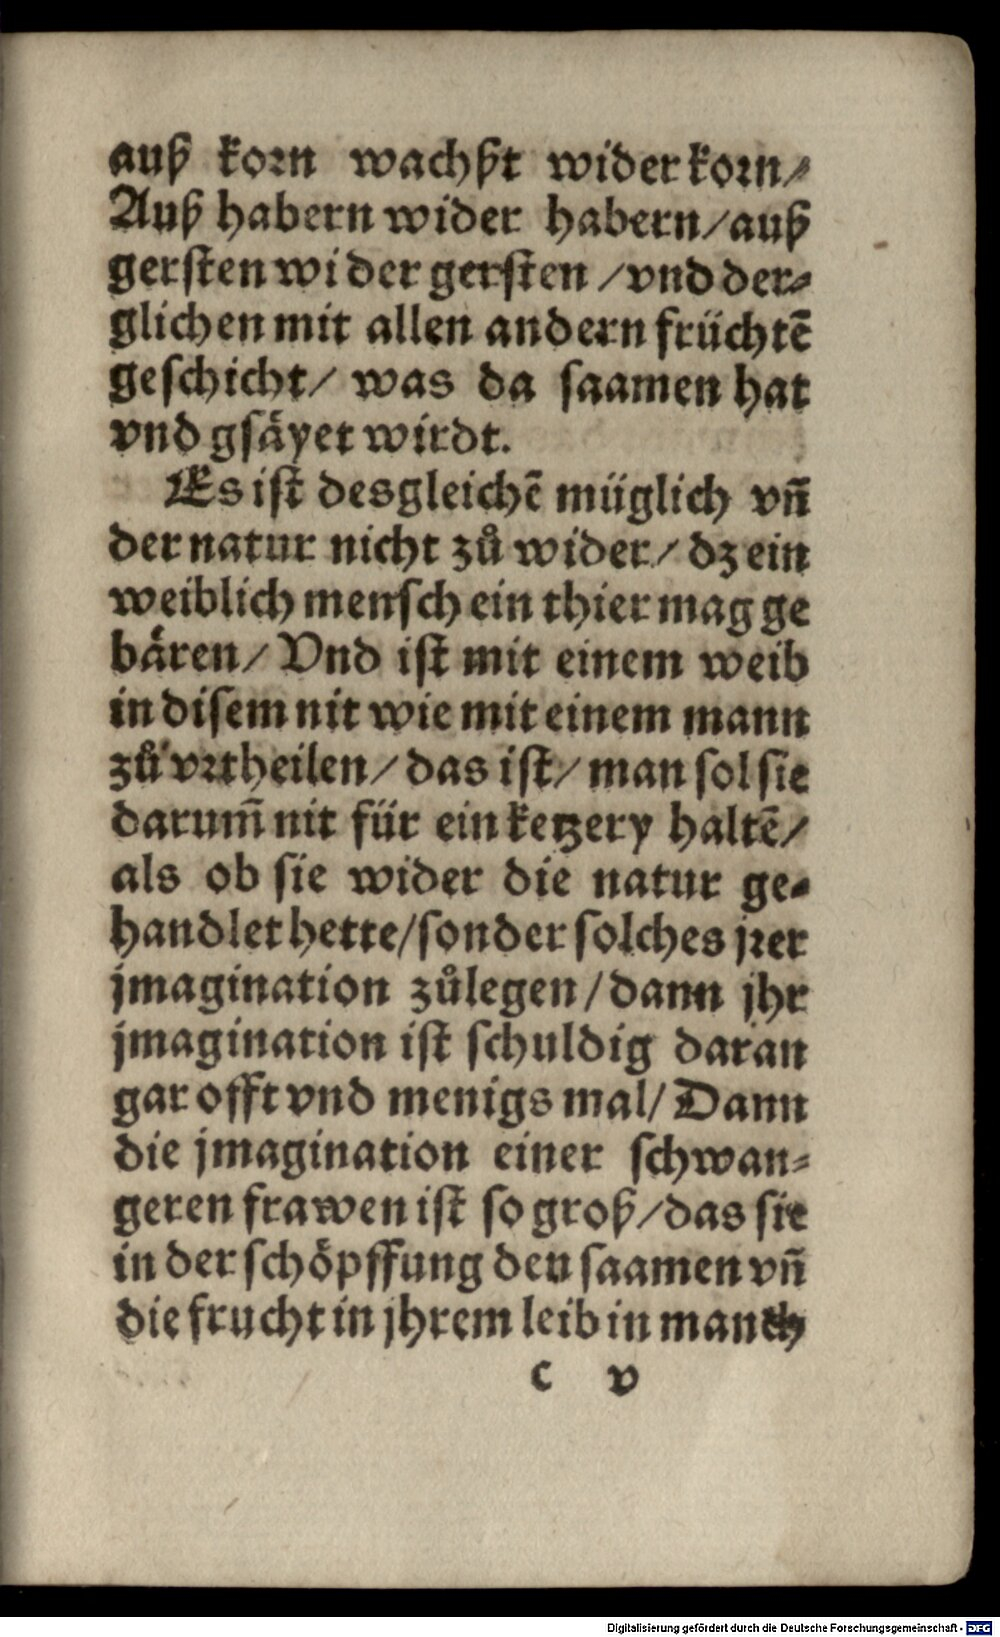 auß korn wachßt wider korn/
Auß habern wider habern/auß
gersten wider gersten /vnd der⸗
glichen mit allen andern früchtē
geschicht/ was da saamen hat
vnd gsäyet wirdt.
Es ist desgleichē müglich vñ
der natur nicht zů wider/ dz ein
weiblich mensch ein thier mag ge
bären/ Vnd ist mit einem weib
in disem nit wie mit einem mann
zů vrtheilen/ das ist/ man sol sie
darum̄ nit für ein ketzery haltē/
als ob sie wider die natur ge⸗
handlet hette/sonder solches jrer
jmagination zůlegen/dann jhr
jmagination ist schuldig daran
gar offt vnd menigs mal/ Dann
die jmagination einer schwan⸗
geren frawen ist so groß/das sie
in der schöpffung den saamen vñ
die frucht in jhrem leib in manch
c v
Digitalisierung gefördert durch die Deutsche Forschungsgemeinschaft - DFG